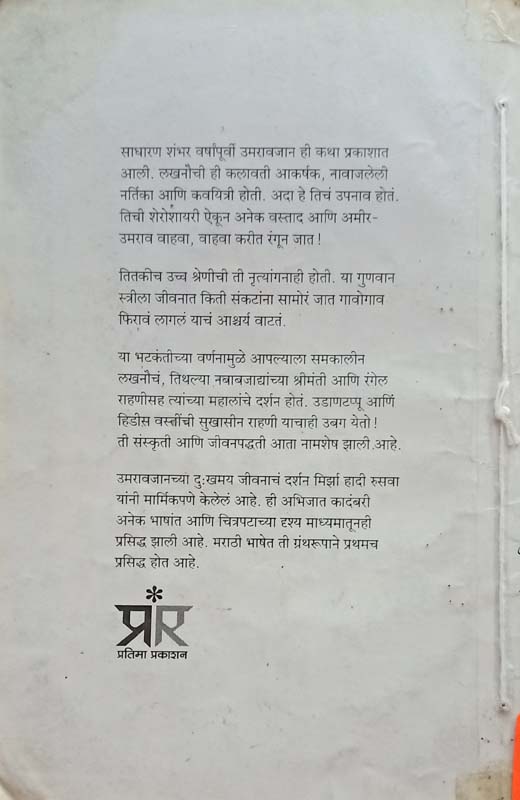 साधारण शंभर वर्षांपूर्वी उमरावजान ही कथा प्रकाशात
आली. लखनौची ही कलावती आकर्षक, नावाजलेली
नर्तिका आणि कवयित्री होती. अदा हे तिचं उपनाव होतं.
तिची शेरोशायरी ऐकून अनेक वस्ताद आणि अमीर-
उमराव वाहवा, वाहवा करीत रंगून जात !
तितकीच उच्च श्रेणीची ती नृत्यांगनाही होती. या गुणवान
स्त्रीला जीवनात किती संकटांना सामोरं जात गावोगाव
फिरावं लागलं याचं आश्चर्य वाटतं.
या भटकंतीच्या वर्णनामुळे आपल्याला समकालीन
लखनौचं, तिथल्या नबाबजाद्यांच्या श्रीमंती आणि रंगेल
राहणीसह त्यांच्या महालांचे दर्शन होतं. उडाणटप्पू आणि
हिडीस वस्तींची सुखासीन राहणी याचाही उबग येतो !
ती संस्कृती आणि जीवनपद्धती आता नामशेष झाली.आहे.
उमरावजानच्या दुःखमय जीवनाचं दर्शन मिर्झा हादी रुसवा
यांनी मार्मिकपणे केलेलं आहे. ही अभिजात कादंबरी
अनेक भाषांत आणि चित्रपटाच्या दृश्य माध्यमातूनही
प्रसिद्ध झाली आहे. मराठी भाषेत ती ग्रंथरूपाने प्रथमच
प्रसिद्ध होत आहे.
प्रतिमा प्रकाशन